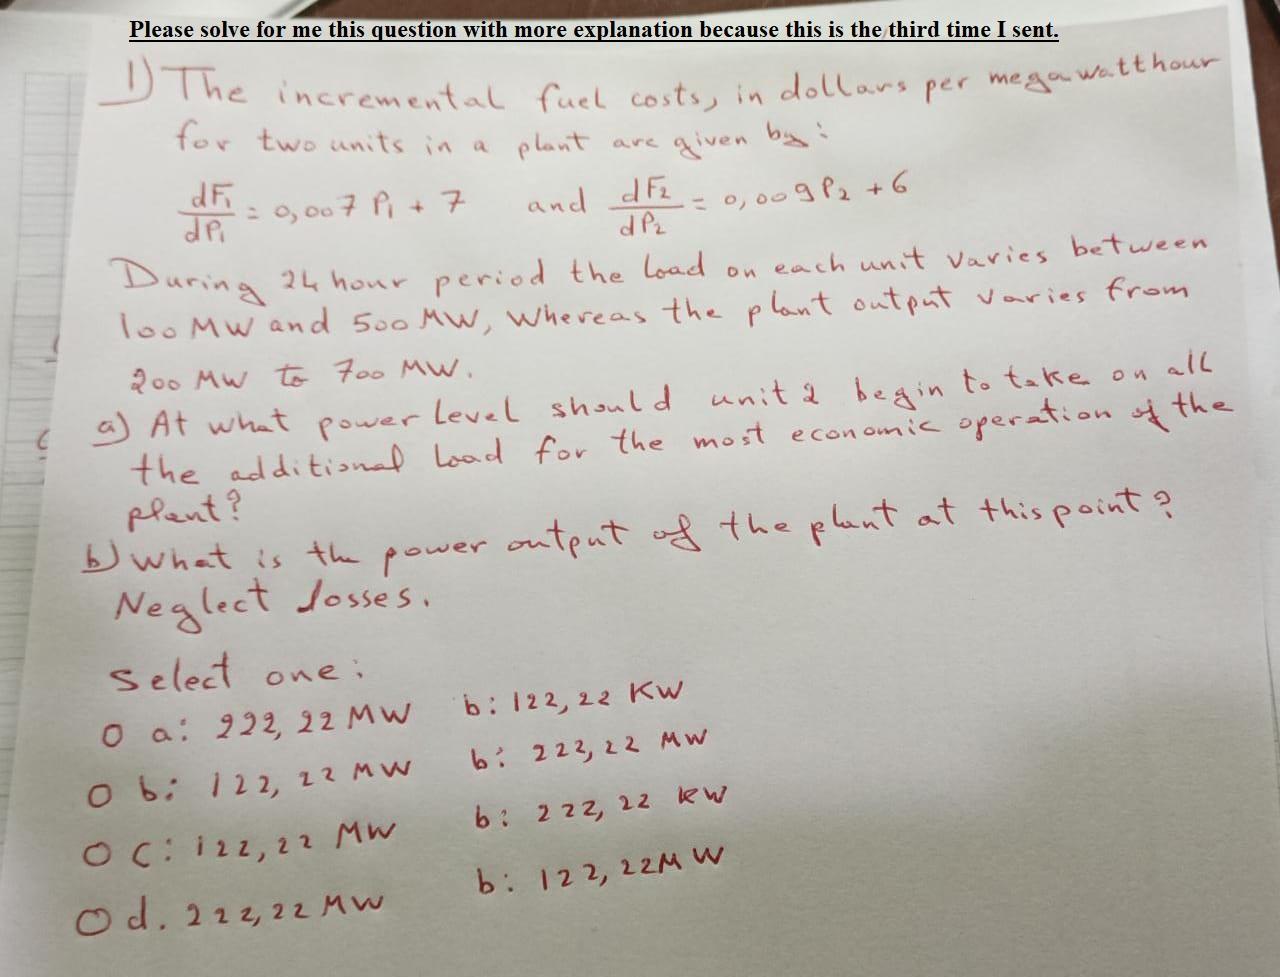 Please solve for me this question with more explanation because this is the third time I sent.
1) The incremental fuel costs, in dollars per megawatthour
for two units in a plant are given by:
dF₁/dP₁ = 0,007 P₁ + 7 and dF₂/dP₂ = 0,009 P₂ + 6
During 24 hour period the load on each unit varies between
100 MW and 500 MW, Whereas the plant output varies from
200 MW to 700 MW.
a) At what power level should unit 2 begin to take on all
the additional load for the most economic operation of the
plant?
b) What is the power output of the plant at this point?
Neglect losses.
Select one:
O a: 222,22 MW b: 122,22 KW
O b: 122,22 MW b: 222,22 MW
O c: 122,22 MW b: 222,22 KW
O d. 222,22 MW b: 122,22 MW